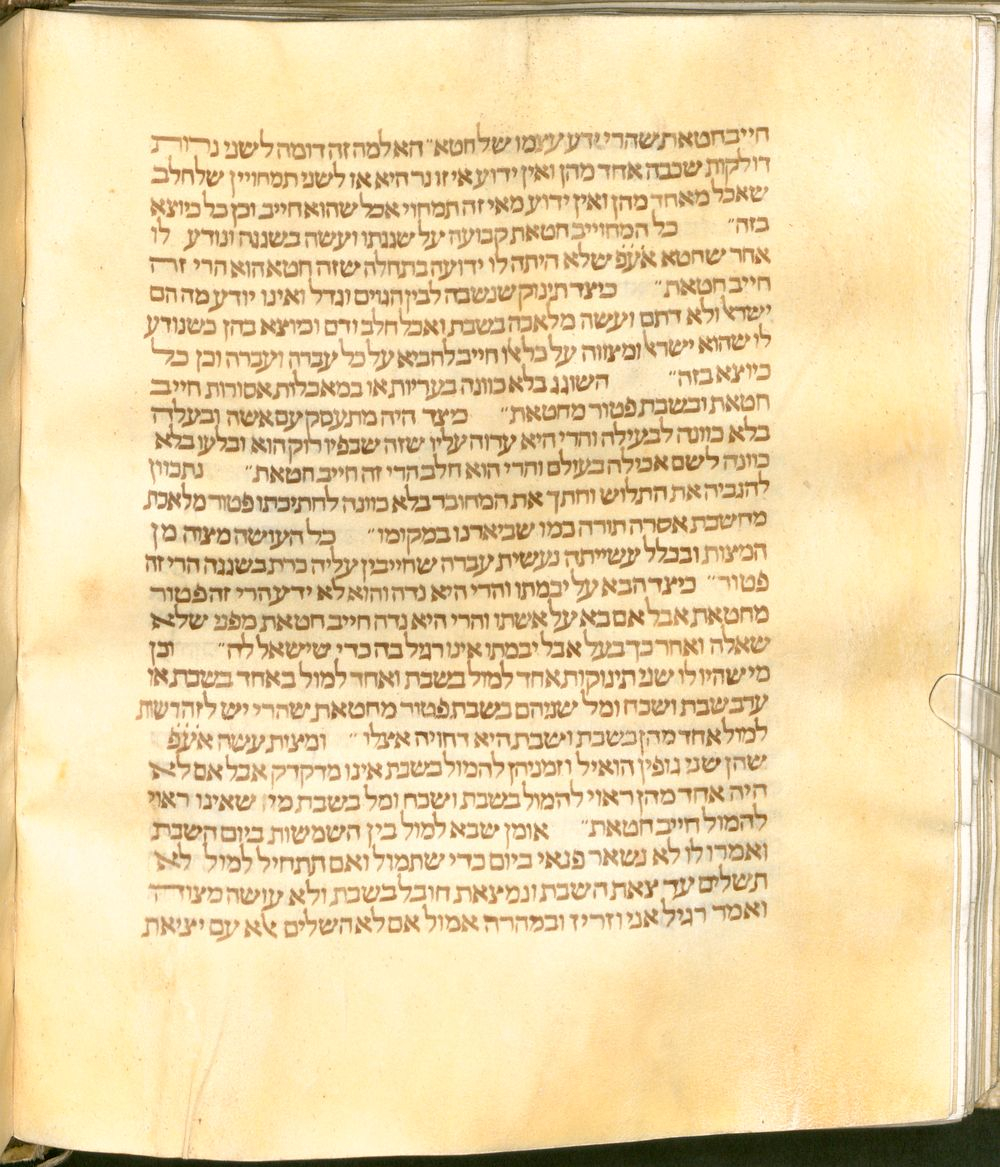 חייב חטאת שהרי ידע עצמו של חטא״ הא למה זה דומה לשני נרות
דולקות שכבה אחד מהן ואין ידוע אי זו נר היא או לשני תמחויין של חלב
שאכל מאחד מהן ואין ידוע מאי זה תמחוי אכל שהוא חייב וכן כל כיוצא
בזה״ כל המחוייב חטאת קבועה על שגגתו ועשה בשגגה ונודע לו
אחר שחטא אעפ שלא היתה לו ידועה בתחלה שזה חטא הוא הרי זה
חייב חטאת״ כיצד תינוק שנשבה לבין הגוים וגדל ואינו יודע מה הם
ישראל ולא דתם ועשה מלאכה בשבת ואכל חלב ודם וכיוצא בהן כשנודע
לו שהוא ישראל ומצווה על כל אלו חייב להביא על כל עברה ועברה וכן כל
כיוצא בזה״ השוגג בלא כוונה בעריות או במאכלות אסורות חייב
חטאת ובשבת פטור מחטאת״ כיצד היה מתעסק עם אשה ובעלה
בלא כוונה לבעילה והרי היא ערוה עליו שזה שבפיו רוק הוא ובלעו בלא
כוונה לשם אכילה בעולם והרי הוא חלב הרי זה חייב חטאת״ נתכוון
להגביה את התלוש וחתך את המחובר בלא כוונה לחתיכתו פטור מלאכת
מחשבת אסרה תורה כמו שביארנו במקומו״ כל העושה מצוה מן
המצות ובכלל עשייתה נעשית עברה שחייבין עליה כרת בשגגה הרי זה
פטור״ כיצד הבא על יבמתו והרי היא נדה והוא לא ידע הרי זה פטור
מחטאת אבל אם בא על אשתו והרי היא נדה חייב חטאת מפני שלא
שאלה ואחר כך בעל אבל יבמתו אינו רגיל בה כדי שישאל לה״ וכן
מי שהיו לו שני תינוקות אחד למול בשבת ואחד למול באחד בשבת או
ערב שבת ושכח ומל שניהם בשבת פטור מחטאת שהרי יש לו רשות
למול אחד מהן בשבת ושבת היא דחויה אצלו״ ומצות עשה אעפ
שהן שני גופין הואיל וזמניהן להמול בשבת אינו מדקדק אבל אם לא
היה אחד מהן ראוי להמול בשבת ושכח ומל בשבת מי שאינו ראוי
להמול חייב חטאת״ אומן שבא למול בין השמשות ביום השבת
ואמרו לו לא נשאר פנאי ביום כדי שתמול ואם תתחיל למול לא
תשלים עד צאת השבת ונמצאת חובל בשבת ולא עושה מצוה
ואמר רגיל אני וזריז ובמהרה אמול אם לא השלים אלא עם יציאת